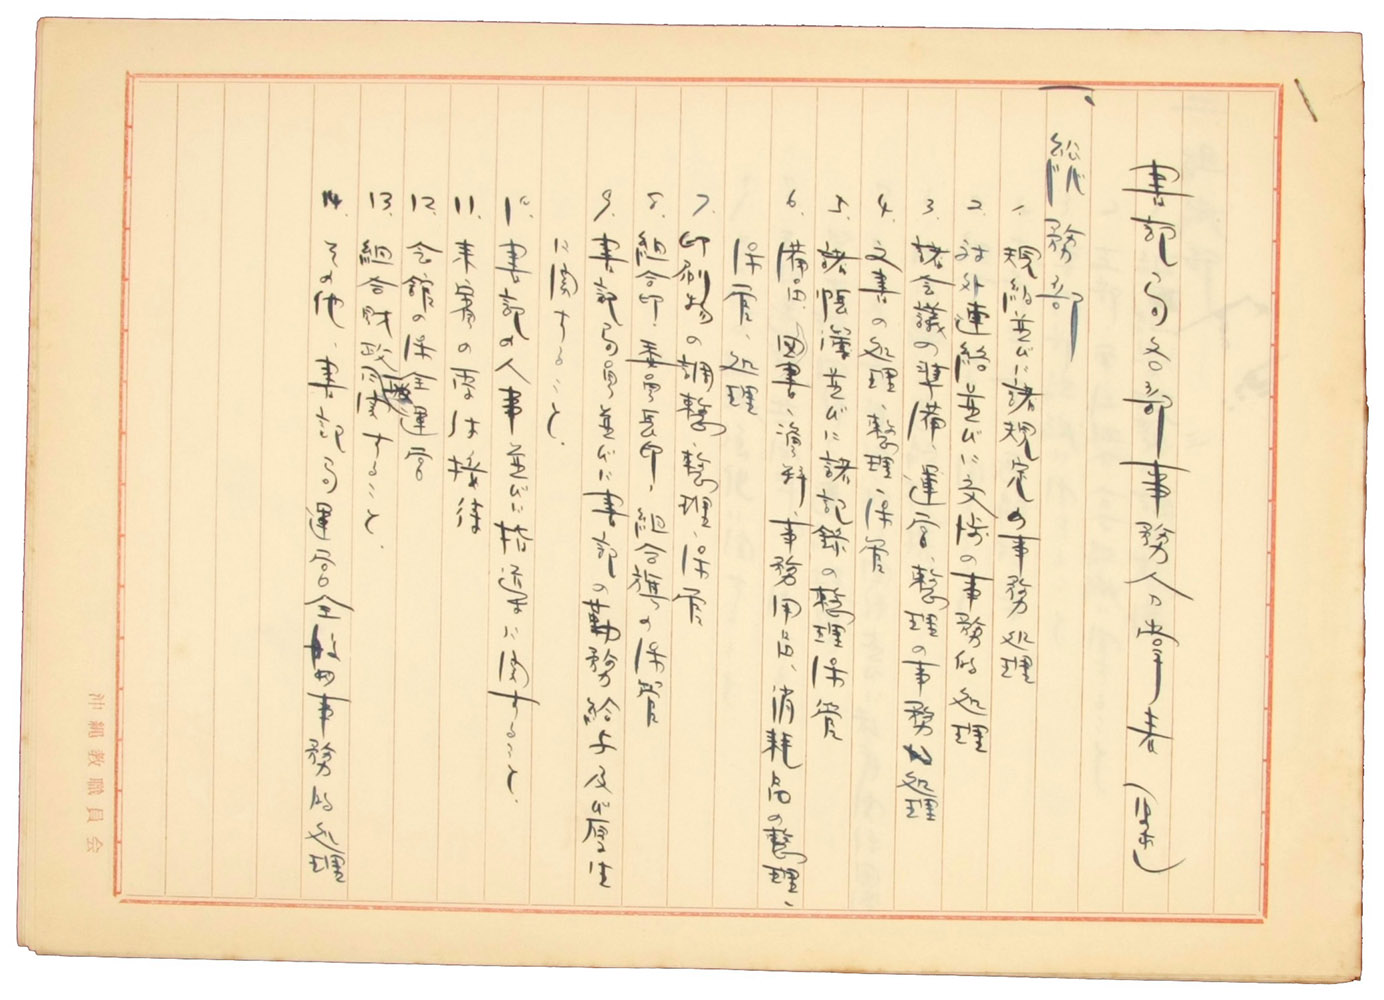 書記局各部事務分掌表(案)
一、総務部
1. 規約並びに諸規定の事務処理
2. 対外連絡並びに交渉の事務的処理
3. 諸会議の準備、運営、整理の事務処理
4. 文書の処理、整理、保管
5. 諸帳簿並びに諸記録の整理保管
6. 備品、図書、資料、事務用品、消耗品の整理、
保管、処理
7. 印刷物の調整、整理、保管
8. 組合印、委員長印、組合旗の保管
9. 書記局員並びに書記の勤務給与及び厚生
に関すること。
10. 書記の人事並びに指導に関すること。
11. 来賓の応接待
12. 会館の保全運営
13. 組合財政に関すること。
14. その他、書記局運営全般の事務的処理
沖縄教職員会